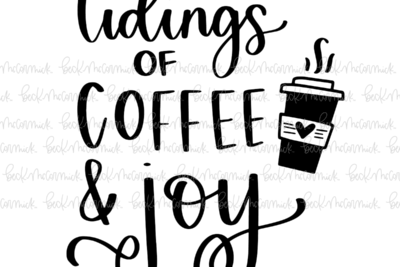 tidings
OF
COFFEE
& joy